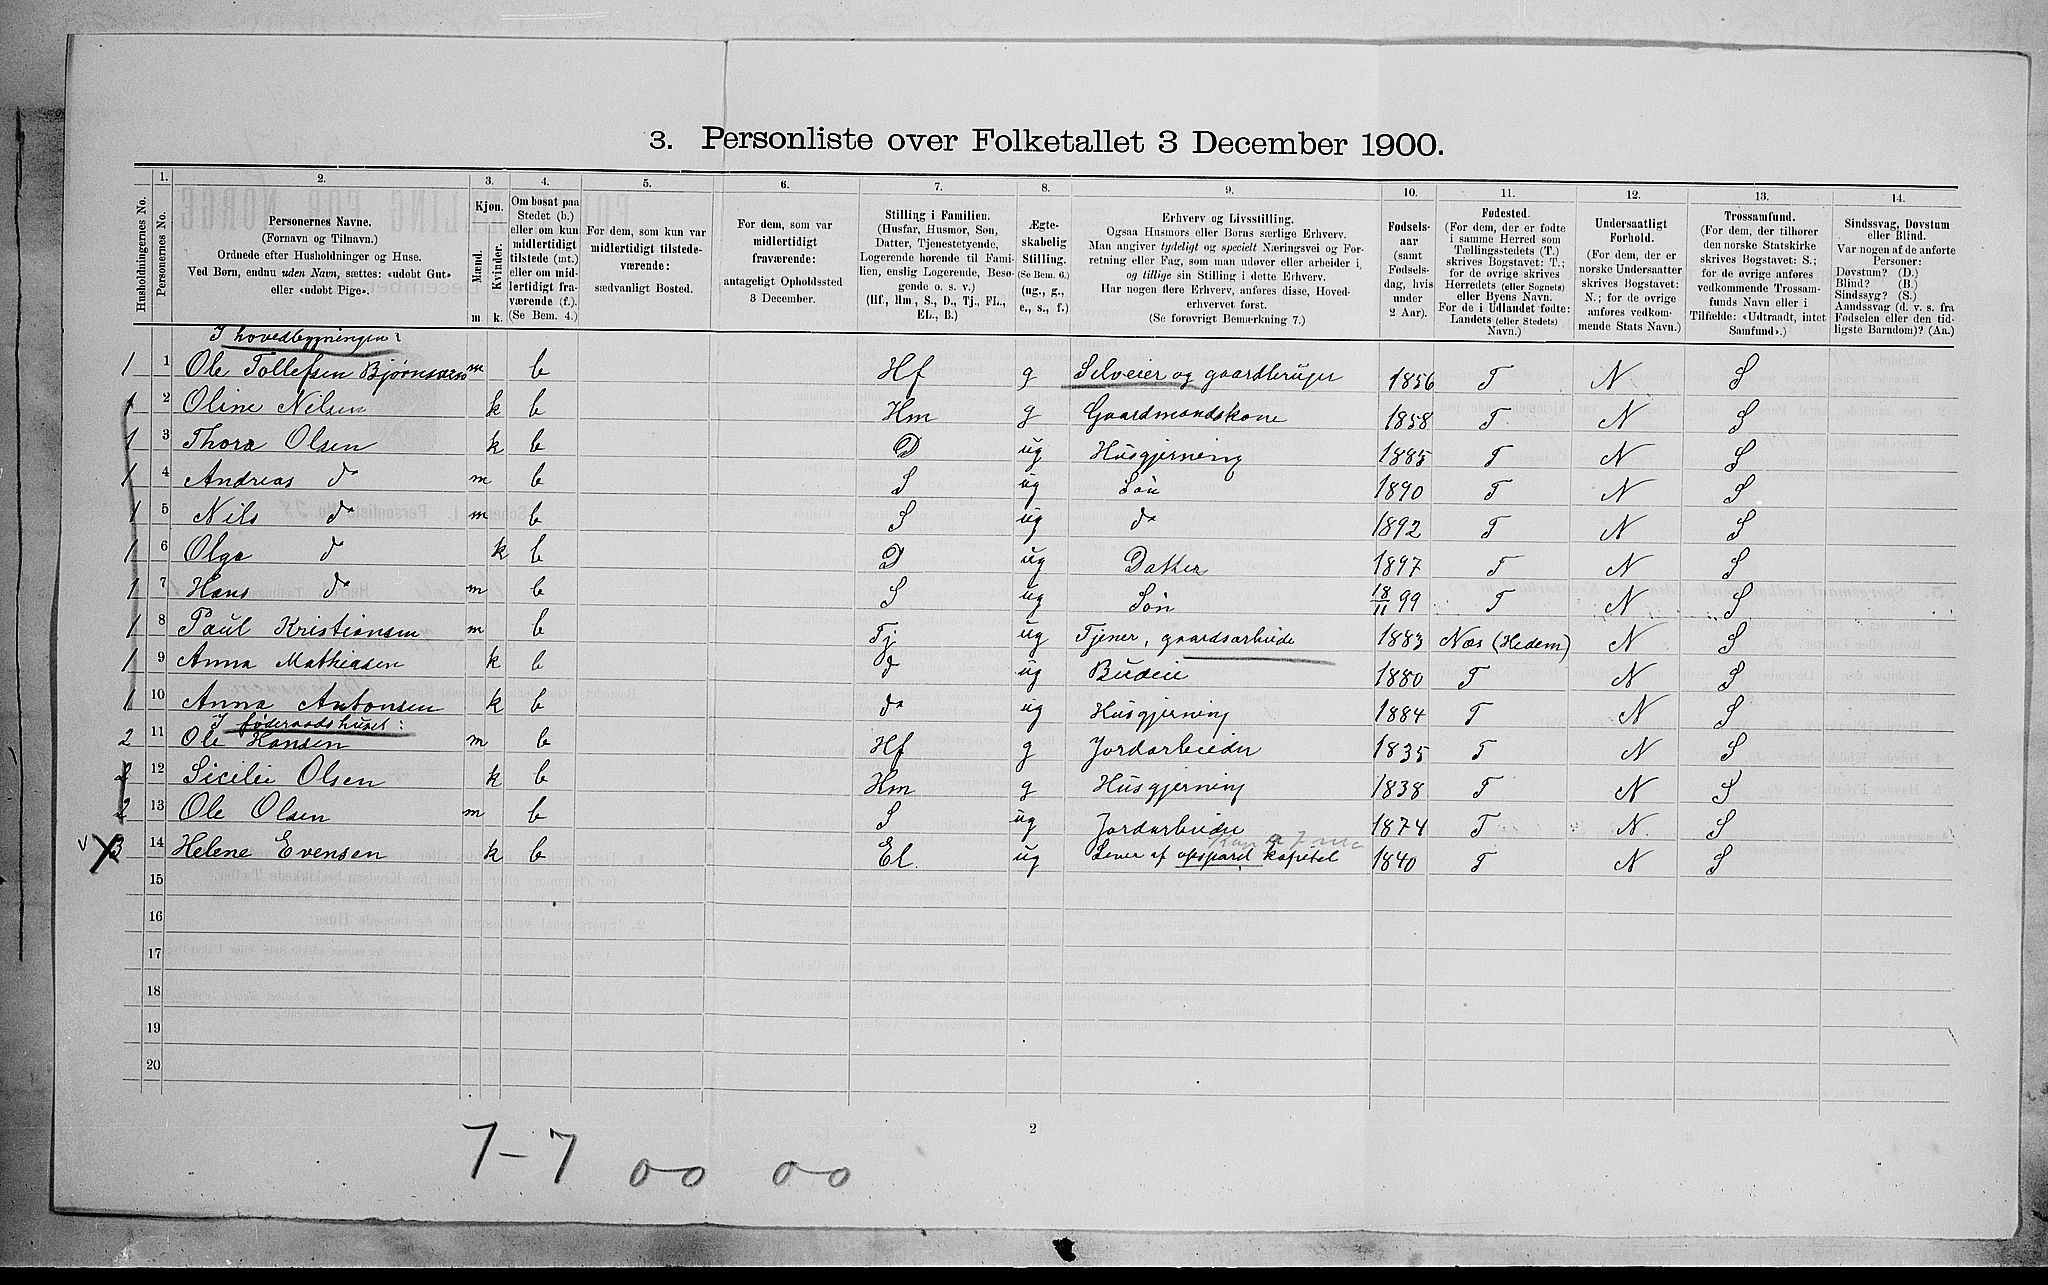 3. Personliste over Folketallet 3 December 1900.
1. 2. 3. 4. 5. 6. 7. 8. 9. 10. 11. 12. 13. 14.
Husholdningernes No.
Personernes No.
Personernes Navne.
(Fornavn og Tilnavn.)
Ordnede efter Husholdninger og Huse.
Ved Børn, endnu uden Navn, sættes: «udøbt Gut»
eller «udøbt Pige».
Kjøn.
Mænd.
Kvinder.
m. k.
Om bosat paa
Stedet (b.)
eller om kun
midlertidigt
tilstede (mt.)
eller om mid-
lertidigt fra-
værende (f.).
(Se Bem. 4.)
For dem, som kun var
midlertidigt tilstede-
værende:
sædvanligt Bosted.
For dem, som var
midlertidigt
fraværende:
antageligt Opholdssted
3 December.
Stilling i Familien.
(Husfar, Husmor, Søn,
Datter, Tjenestetyende,
Logerende hørende til Fami-
lien, enslig Logerende, Besø-
gende o. s. v.)
(Hf., Hm., S., D., Tj., FL.,
EL., B.)
Ægte-
skabelig
Stilling.
(Se Bem. 6.)
(ug., g.,
e., s., f.)
Erhverv og Livsstilling.
Ogsaa Husmors eller Børns særlige Erhverv.
Man angiver tydeligt og specielt Næringsvei og For-
retning eller Fag, som man udøver eller arbeider i,
og tillige sin Stilling i dette Erhverv.
Har nogen flere Erhverv, anføres disse, Hoved-
erhvervet først.
(Se forøvrigt Bemærkning 7.)
Fødsels-
aar
(samt
Fødsels-
dag, hvis
under
2 Aar).
Fødested.
(For dem, der er fødte
i samme Herred som
Tællingsstedets (T.)
skrives Bogstavet: T.;
for de øvrige skrives
Herredets (eller Sognets)
eller Byens Navn.
For de i Udlandet fødte:
Landets (eller Stedets)
Navn.)
Undersaatligt
Forhold.
(For dem, der er
norske Undersaatter
skrives Bogstavet:
N.; for de øvrige
anføres vedkom-
mende Stats Navn.)
Trossamfund.
(For dem, der tilhører
den norske Statskirke
skrives Bogstavet: S.;
for de øvrige anføres
vedkommende Trossam-
funds Navn eller i
Tilfælde: «Udtraadt, intet
Samfund».)
Sindssvag, Døvstum
eller Blind.
Var nogen af de anførte
Personer:
Døvstum? (D.)
Blind? (B.)
Sindssyg? (S.)
Aandssvag (d. v. s. fra
Fødselen eller den tid-
ligste Barndom)? (Aa.)
I hovedbygningen:
1 1 Ole Tollefsen Bjørnsveen m b Hf g Selveier og gaardbruger 1856 T N S
1 2 Oline Nilsen k b Hm g Gaardmandskone 1858 T N S
1 3 Thora Olsen k b D ug Husgjerning 1885 T N S
1 4 Andreas do m b S ug Søn 1890 T N S
1 5 Nils do m b S ug do 1892 T N S
1 6 Olga do k b D ug Datter 1897 T N S
1 7 Hans do m b S ug Søn 18/11 99 T N S
1 8 Paul Kristiansen m b Tj ug Tjener, gaardsarbeide 1883 Næs (Hedem) N S
1 9 Anna Mathiasen k b do ug Budeie 1880 T N S
1 10 Anna Antonsen k b do ug Husgjerning 1884 T N S
I føderaadshuset:
2 11 Ole Hansen m b Hf g Jordarbeider 1835 T N S
2 12 Sicilie Olsen k b Hm g Husgjerning 1838 T N S
2 13 Ole Olsen m b S ug Jordarbeider 1874 T N S
3 14 Helene Evensen k b El. ug Lever af opsparet kapital 1840 T N S
15
16
17
18
19
20
2
7-7 00 00